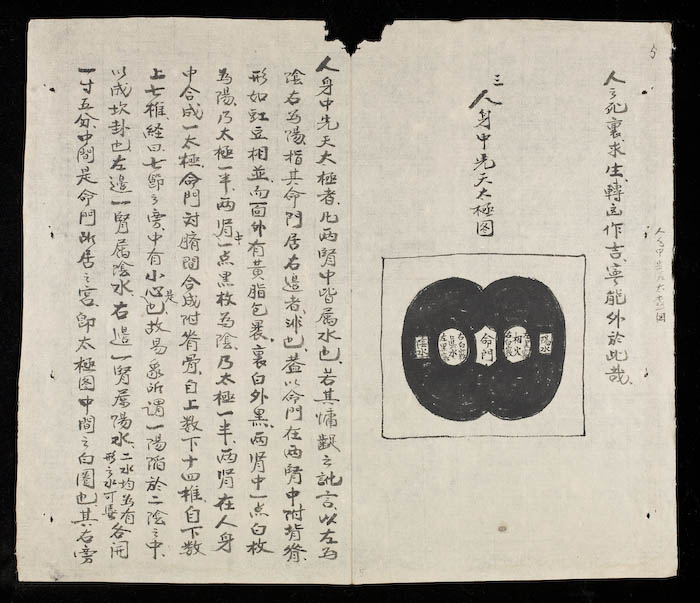 5
人之死裏求生、轉凶作吉、寧能外於此哉、
三 人身中先天太極图
人身中先天太極图
陽水
相火
命門
真水
陰水
人身中先天太極者、凡两腎中皆属水也、若其慵觀之訛言、以左為
陰右為陽、指其命門居右邉者、非也、蓋以命門在两腎中附脊膂、
形如豇豆相並、而面外有黄脂包裹、裏白外黑、两腎中一点白枚
為陽、乃太極一半、两腎一点黒枚為陰、乃太極一半、两腎在人身
中合成一太極、命門对臍間合成附脊骨、自上数下十四椎、自下数
上七椎、経曰、七節之旁中有小心是也、故易象所謂一陽陷於二陰之中、
以成坎卦也、左邉一腎属陰水、右邉一腎属陽水、二水均為有形之水、各開
一寸五分、中間是命門所居之宫、即太極图中間之白圏也、其右旁